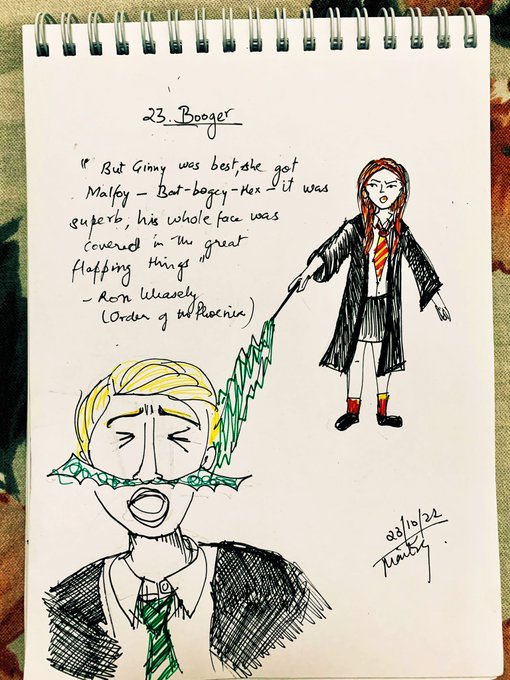 23. Booger
" But Ginny was best, she got
Malfoy – Bat-bogey-Hex – it was
superb, his whole face was
covered in the great
flapping things "
- Ron Weasely
(Order of the Phoenix)
23/10/22